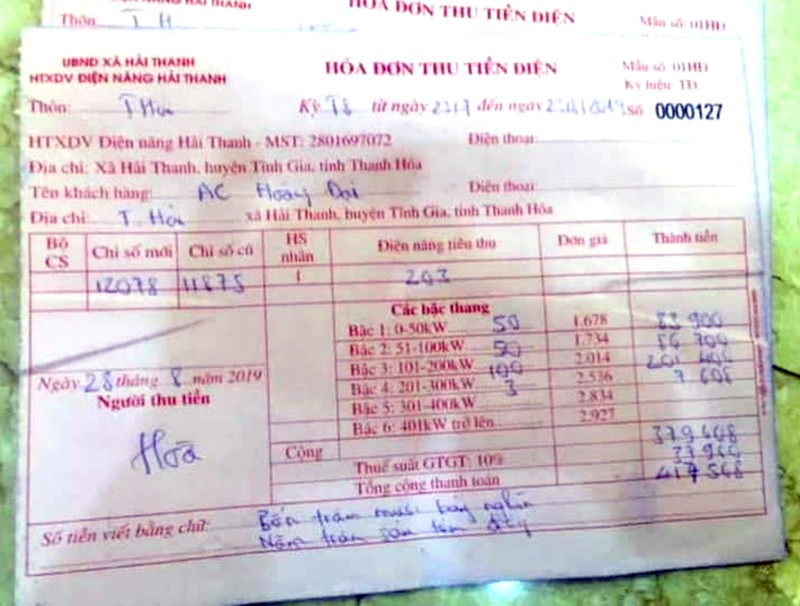 Thôn: T H
HÓA ĐƠN THU TIỀN ĐIỆN
Mẫu số: 01HD
UBND XÃ HẢI THANH
HTXDV ĐIỆN NĂNG HẢI THANH
HÓA ĐƠN THU TIỀN ĐIỆN
Mẫu số: 01HD
Ký hiệu TD
Thôn: T Hoà
Kỳ T8 từ ngày 23/7 đến ngày Số 0000127
HTXDV Điện năng Hải Thanh - MST: 2801697072 Điện thoại:
Địa chỉ: Xã Hải Thanh, huyện Tĩnh Gia, tỉnh Thanh Hóa
Tên khách hàng: AC Hoàng Đại Điện thoại:
Địa chỉ: T. Hòa xã Hải Thanh, huyện Tĩnh Gia, tỉnh Thanh Hóa
Bộ CS Chỉ số mới Chỉ số cũ HS nhân Điện năng tiêu thụ Đơn giá Thành tiền
12078 11875 1 203
Các bậc thang
Bậc 1: 0-50kW 50 1.678 83 900
Bậc 2: 51-100kW 50 1.734 86 700
Bậc 3: 101-200kW 100 2.014 201 400
Bậc 4: 201-300kW 3 2.536 7 608
Bậc 5: 301-400kW 2.834
Bậc 6: 401kW trở lên 2.927
Cộng 379 608
Thuế suất GTGT: 10% 37 960
Tổng cộng thanh toán 417 568
Ngày 28 tháng 8 năm 2019
Người thu tiền
Hoà
Số tiền viết bằng chữ: Bốn trăm mười bảy nghìn
Năm trăm sáu tám đ